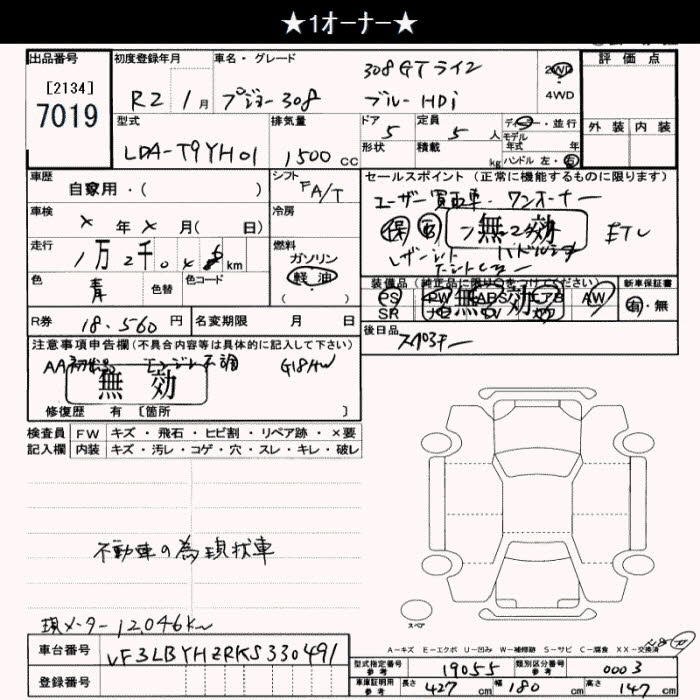 ★1オーナー★
出品番号 初度登録年月 車名・グレード 308GTライン 2WD 評価点
[2134] R2 1月 プジョー308 ブルーHDi 4WD
7019
型式 排気量 ドア 定員 ディーラー・並行 外装 内装
LDA-T9YH01 1500cc 5 5人 モデル年式 年
形状 積載 kg ハンドル 左・右
車歴 シフト セールスポイント(正常に機能するものに限ります)
自家用・( ) FA/T ユーザー買取車 ワンオーナー
車検 X年X月( 日) 冷房 保 無効 ETC
走行 1万2千0 km 燃料 レザーシート
ガソリン
軽油
( )
色 色替 色コード 装備品(純正品に限り○をつけてください) 新車保証書
青 PS PW ABS エアB AW 有・無
SR ナビ TV 無効
R券 18,560円 名変期限 月 日 後日品
注意事項申告欄(不具合内容等は具体的に記入して下さい)
AA初出品 エンジン不調
無効
修復歴 有 [箇所 ]
検査員 FW キズ・飛石・ヒビ割・リペア跡・×要
記入欄 内装 キズ・汚レ・コゲ・穴・スレ・キレ・破レ
不動車の為現状車
スペア
現メーター12,046km
A-キズ E-エクボ U-凹み W-補修跡 S-サビ C-腐食 XX-交換済
車台番号 VF3LBYHZRKS330491
登録番号
型式指定番号 参考 19055 類別区分番号 参考 0003
車庫証明用 参考 長さ 427cm 幅 180cm 高さ 147cm